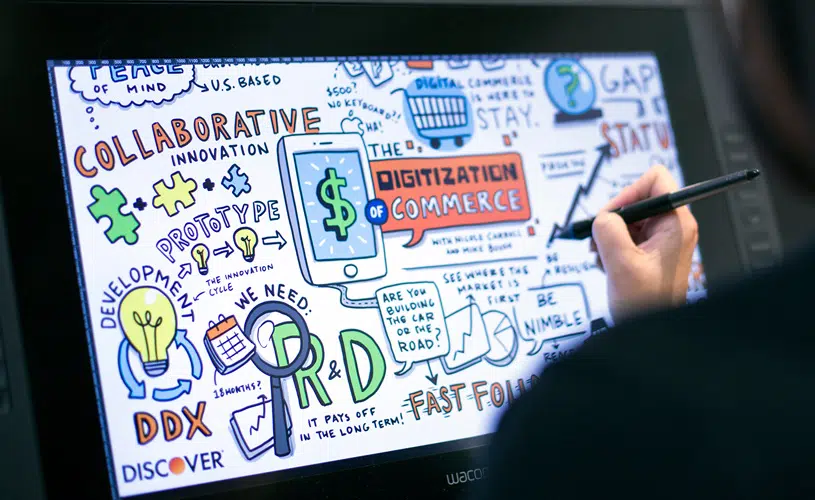 PEACE
OF MIND
U.S. BASED
COLLABORATIVE
INNOVATION
PROTOTYPE
THE INNOVATION
CYCLE
DEVELOPMENT
WE NEED:
R&D
18 MONTHS?
IT PAYS OFF
IN THE LONG TERM!
DDX
DISCOVER
$500?
NO KEYBOARD?!
HA!
DIGITAL COMMERCE
IS HERE TO
STAY.
THE
DIGITIZATION
OF COMMERCE
WITH NICOLE
AND MIKE
$
SEE WHERE THE
MARKET IS
FIRST
ARE YOU
BUILDING
THE CAR
OR THE
ROAD?
FAST FOLL
?
GAP
STATU
BE
BE
NIMBLE
wacom